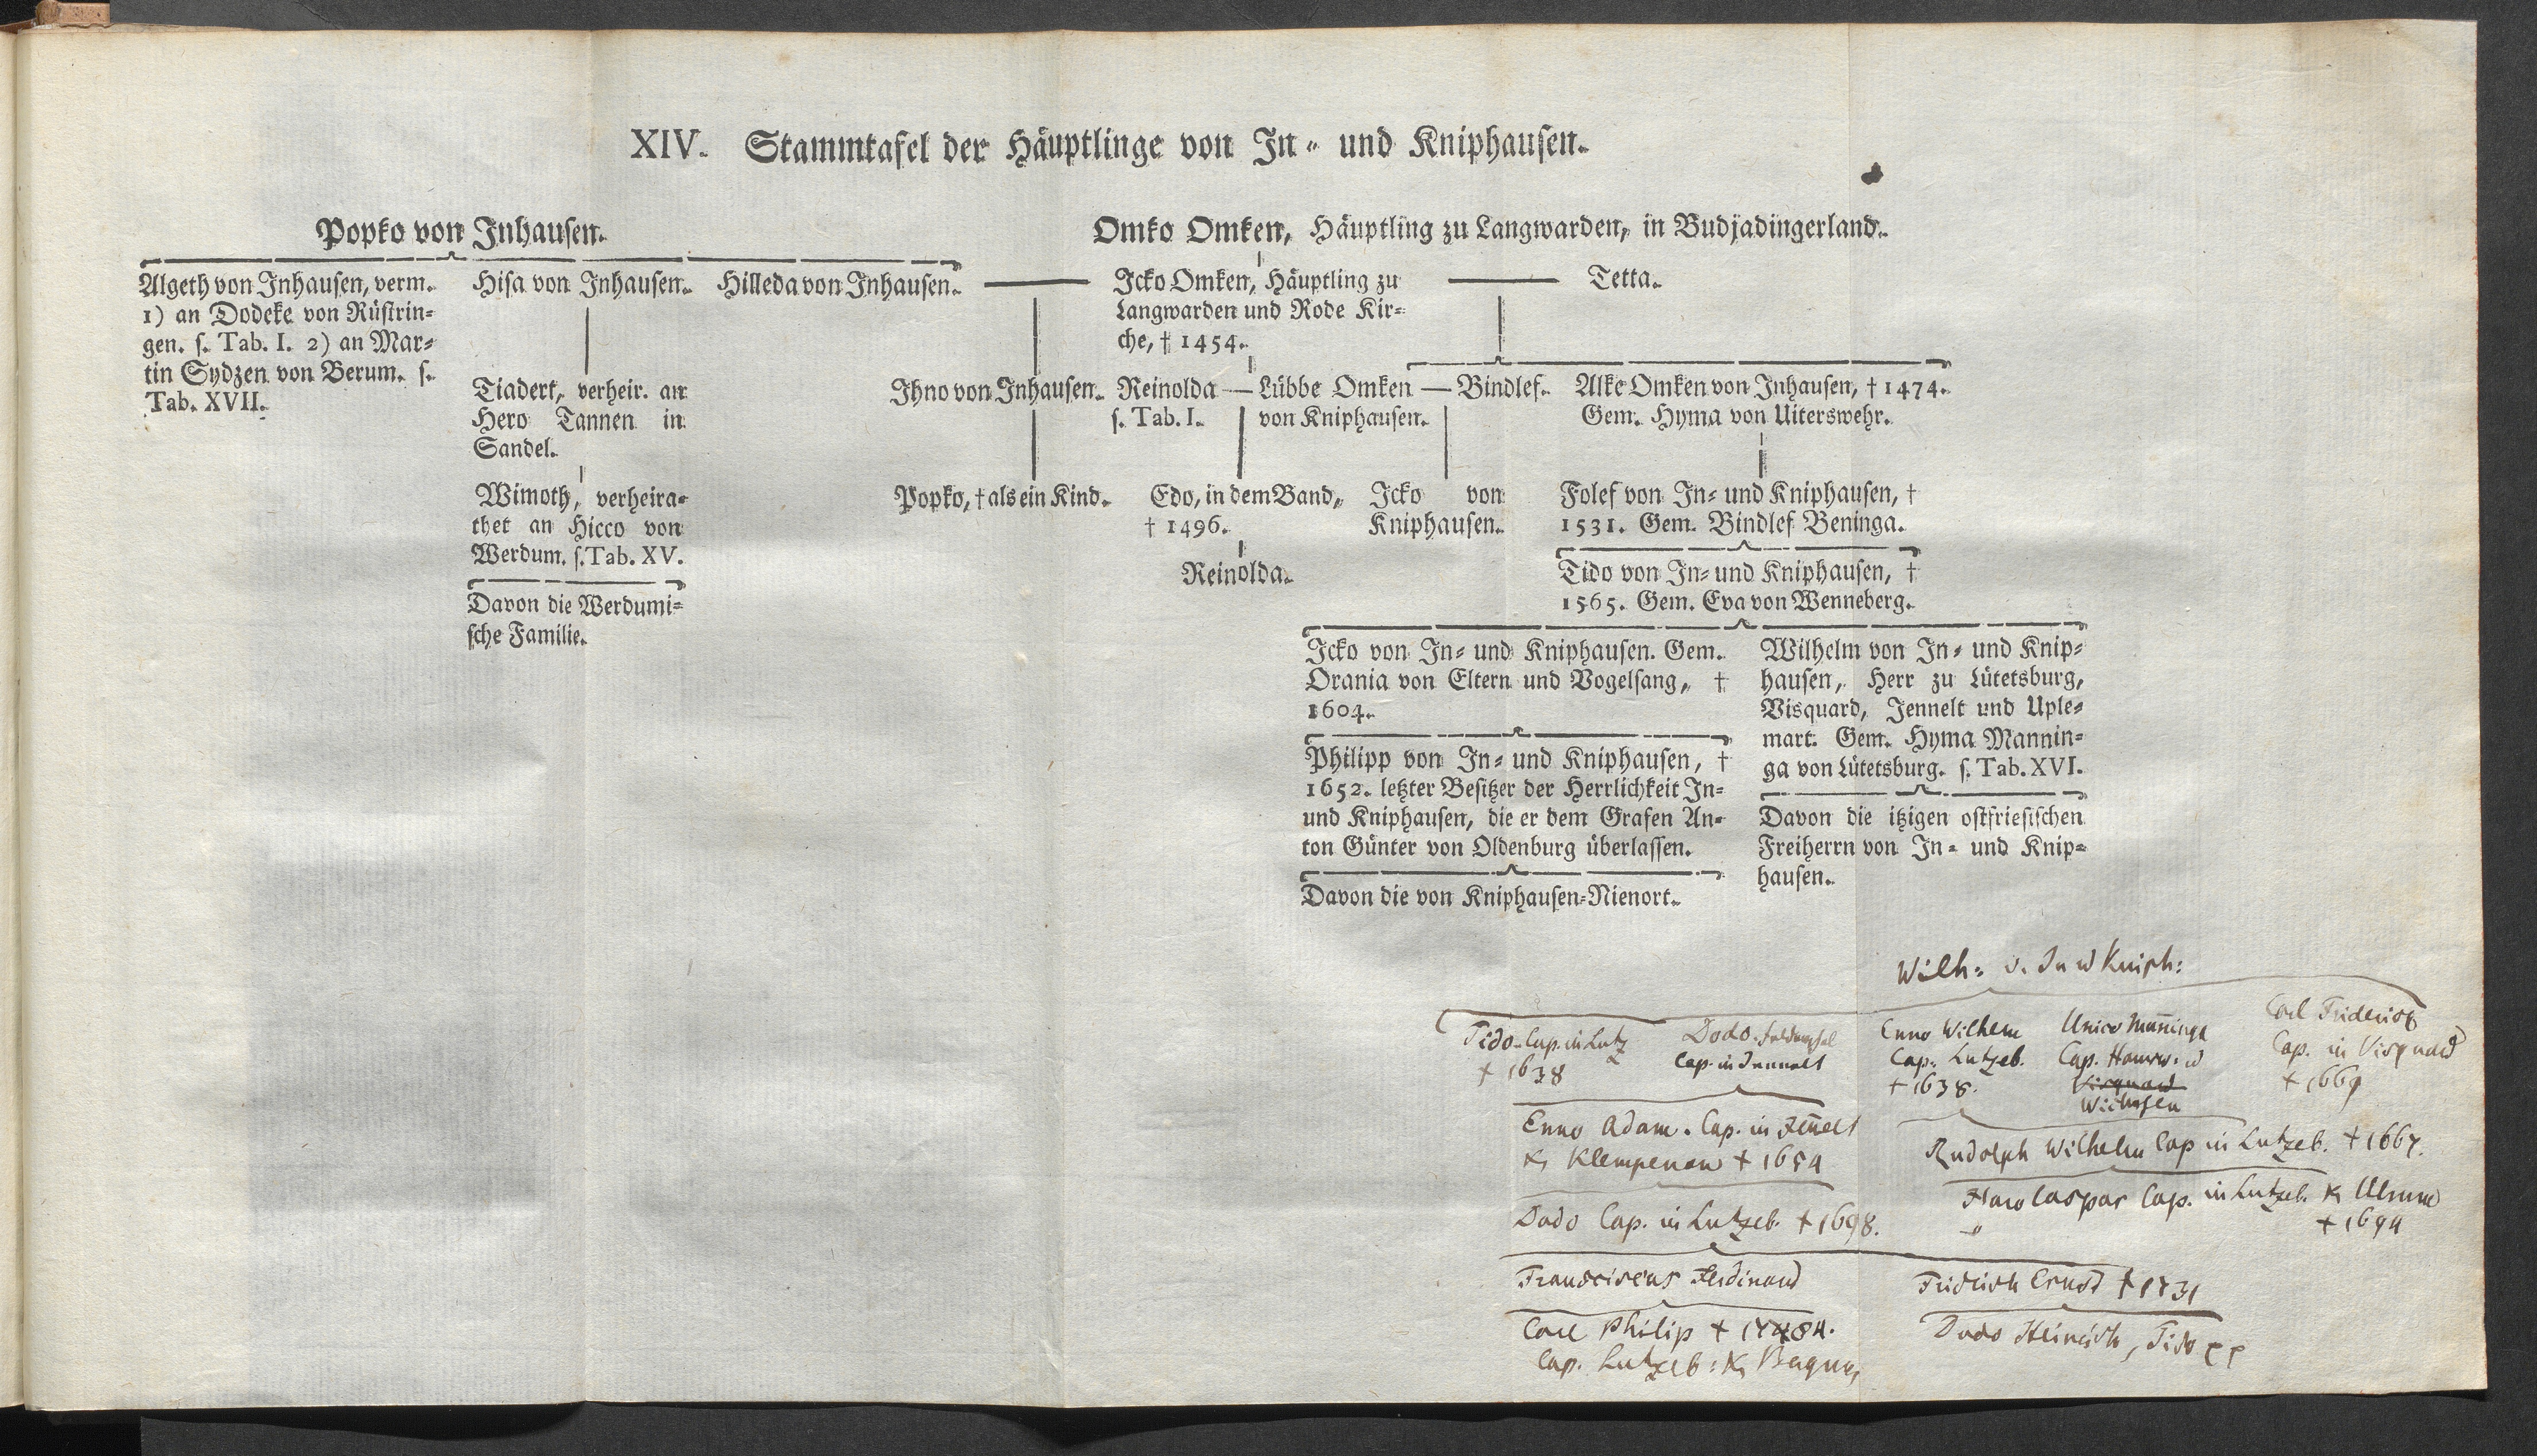 XIV. Stammtafel der Häuptlinge von In- und Kniphausen.
Popko von Inhausen.
Algeth von Inhausen, verm.
1) an Dodeke von Rüstrin-
gen. s. Tab. I. 2) an Mar-
tin Sydzen von Berum. s.
Tab. XVII.
Hisa von Inhausen.
Tiadert, verheir. an
Hero Tannen in
Sandel.
Wimoth, verheira-
thet an Hicco von
Werdum. s. Tab. XV.
Davon die Werdumi-
sche Familie.
Hilleda von Inhausen.
Omko Omken, Häuptling zu Langwarden, in Budjadingerland.
Icko Omken, Häuptling zu
Langwarden und Rode Kir-
che, † 1454.
Tetta.
Ihno von Inhausen.
Popko, † als ein Kind.
Reinolda — Lübbe Omken — Bindlef.
s. Tab. I. von Kniphausen.
Edo, in dem Band,
† 1496.
Reinolda.
Icko von
Kniphausen.
Alke Omken von Inhausen, † 1474.
Gem. Hyma von Uiterswehr.
Folef von In- und Kniphausen, †
1531. Gem. Bindlef Beninga.
Tido von In- und Kniphausen, †
1565. Gem. Eva von Wenneberg.
Icko von In- und Kniphausen. Gem.
Orania von Eltern und Vogelsang, †
1604.
Philipp von In- und Kniphausen, †
1652. letzter Besitzer der Herrlichkeit In-
und Kniphausen, die er dem Grafen An-
ton Günter von Oldenburg überlassen.
Davon die von Kniphausen-Nienort.
Wilhelm von In- und Knip-
hausen, Herr zu Lütetsburg,
Visquard, Jennelt und Uple-
mart. Gem. Hyma Mannin-
ga von Lütetsburg. s. Tab. XVI.
Davon die itzigen ostfriesischen
Freiherrn von In- und Knip-
hausen.
Wilh: v. In u Kniph:
Tido Cap. in Lutz
† 1638
Dodo
Cap. in Jennelt
Enno Wilhelm
Cap. Lutzeb.
† 1638.
Unico Maninga
Cap.
Visquard
Carl Friderich
Cap. in Visquard
† 1669
Enno Adam. Cap. in Jenelt
Klempenow † 1654
Rudolph Wilhelm Cap in Lutzeb. † 1667.
Dodo Cap. in Lutzeb. † 1698.
Haro Caspar Cap. in Lutzeb.
† 1694
Franciscus Ferdinand
Fridrich Ernst † 1731
Carl Philip †
Cap. Lutzeb:
Dodo Heinrich, Tido